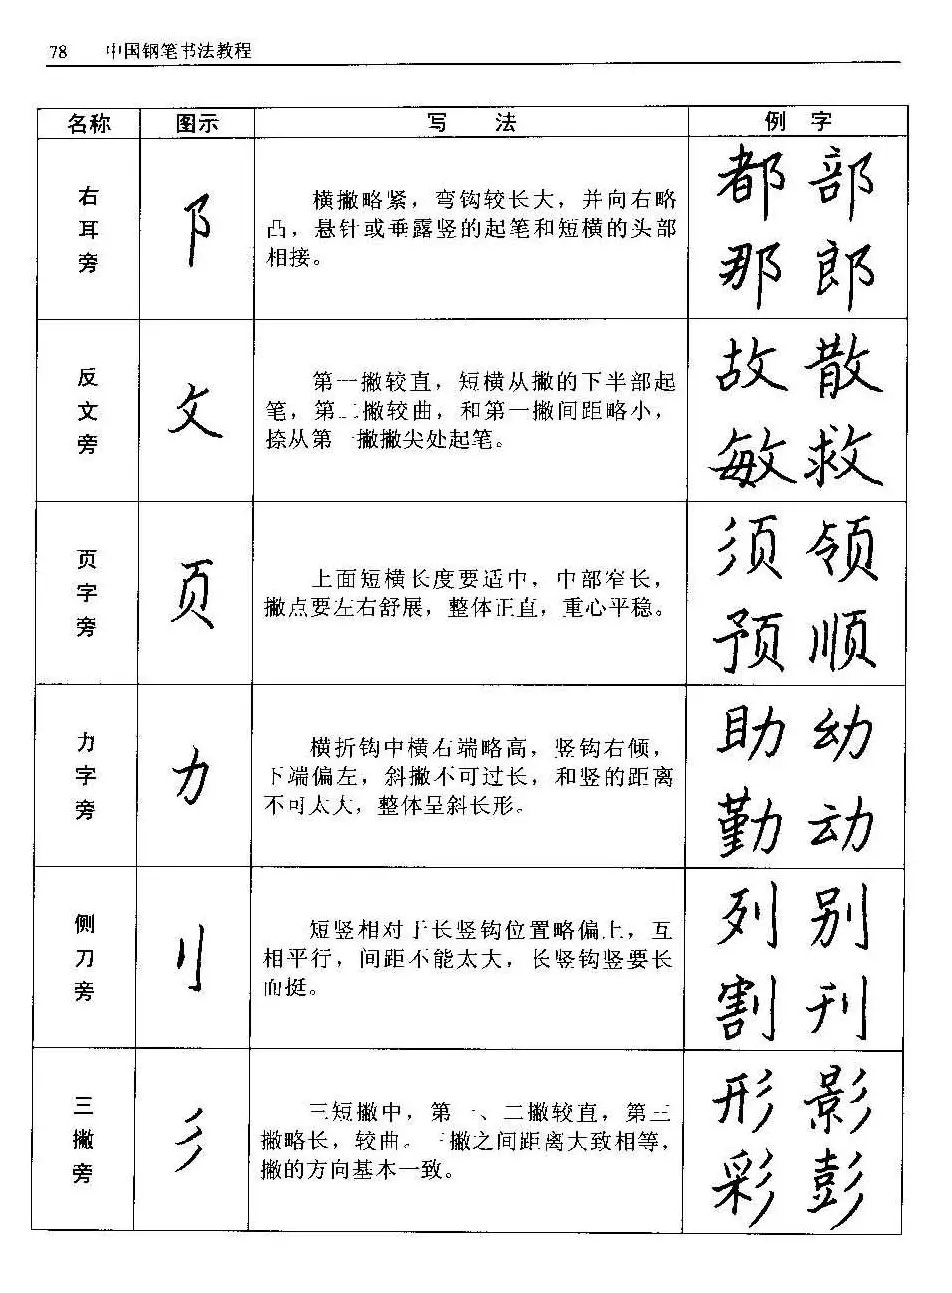 78 中国钢笔书法教程
名称 图示 写 法 例 字
右耳旁
阝
横撇略紧，弯钩较长大，并向右略
凸，悬针或垂露竖的起笔和短横的头部
相接。
都 部
那 郎
反文旁
攵
第一撇较直，短横从撇的下半部起
笔，第二撇较曲，和第一撇间距略小，
捺从第一撇撇尖处起笔。
故 散
敏 救
页字旁
页
上面短横长度要适中，中部窄长，
撇点要左右舒展，整体正直，重心平稳。
须 领
预 顺
力字旁
力
横折钩中横右端略高，竖钩右倾，
下端偏左，斜撇不可过长，和竖的距离
不可太大，整体呈斜长形。
助 幼
勤 动
侧刀旁
刂
短竖相对于长竖钩位置略偏上，互
相平行，间距不能太大，长竖钩竖要长
而挺。
列 别
割 刊
三撇旁
彡
三短撇中，第一、二撇较直，第三
撇略长，较曲。三撇之间距离大致相等，
撇的方向基本一致。
形 影
彩 彭